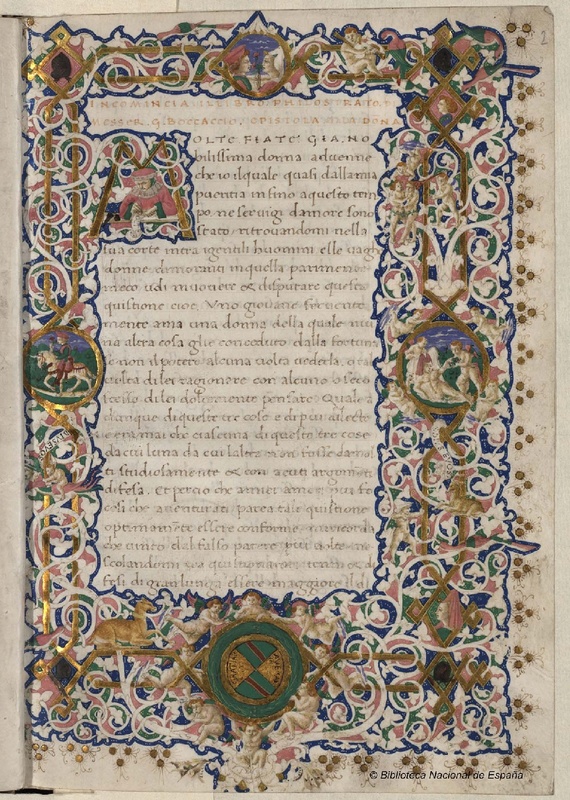 2
INCOMINCIA ILLIBRO PHILOSTRATO D
MESSER G BOCCACCIO
MOLTE FIATE GIA NO
bilissima donna aduenne
che io ilquale quasi dallamia
pueritia insino aquesto tem
po ne seruigi damore sono
stato ritrouandomi nella
sua corte intra igentili huomini elle uagh
donne dimoranti inquella parimente
meco udi muouere & disputare questa
quistione cioe. Vno giouane feruente
mente ama una donna della quale niu
na altra cosa glie conceduto dalla fortuna
e non ilpotere alcuna uolta uederla. o
uolta dilei ragionare con alcuno o seco
stesso dilei dolcemente pensare. Quale
dunque diqueste tre cose e dipiu diletto
e enmai che ciascuna diqueste tre cose
da cui luna da cui laltra non fosse
ti studiosamente & con acuti argomenti
difesa. Et percio che amiei amori piu
cosi che auenturati parea tale quistione
optimamente essere conforme
che uinto dal falso parere piu uolte
scolandomi
fesi digran lunga essere maggiore il di
© Biblioteca Nacional de España